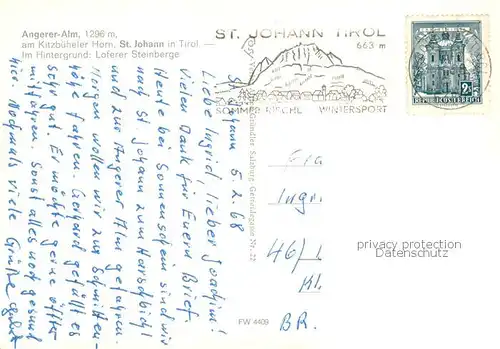 Angerer-Alm, 1296 m,
am Kitzbüheler Horn. St. Johann in Tirol. —
Im Hintergrund: Loferer Steinberge
ST. JOHANN TIROL
663 m
SOMMERFRISCHE WINTERSPORT
REPUBLIK ÖSTERREICH
St. Johann 5.2.68
Liebe Ingrid, lieber Joachim!
Vielen Dank für Euern Brief.
Heute bei Sonnenschein sind wir
nach St. Johann zum Harschbichl
und zur Angerer Alm gefahren.
Morgen wollen wir zur Schmitten-
höhe fahren. Gerhard gefällt es
sehr gut. Er möchte gerne öfter
mitfahren. Sonst alles noch gesund
hier. Nochmals viele Grüße
Fra
Ingr
46/1
Kl.
BR.
FW 4409
privacy protection
Datenschutz